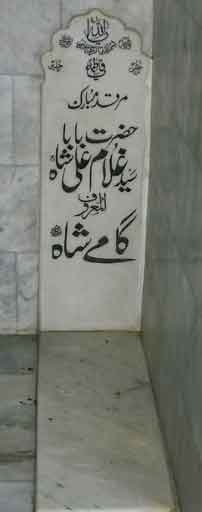 اللہ
مرقد مبارک
حضرت بابا
سید غلام علی شاہ
المعروف
گامے شاہ